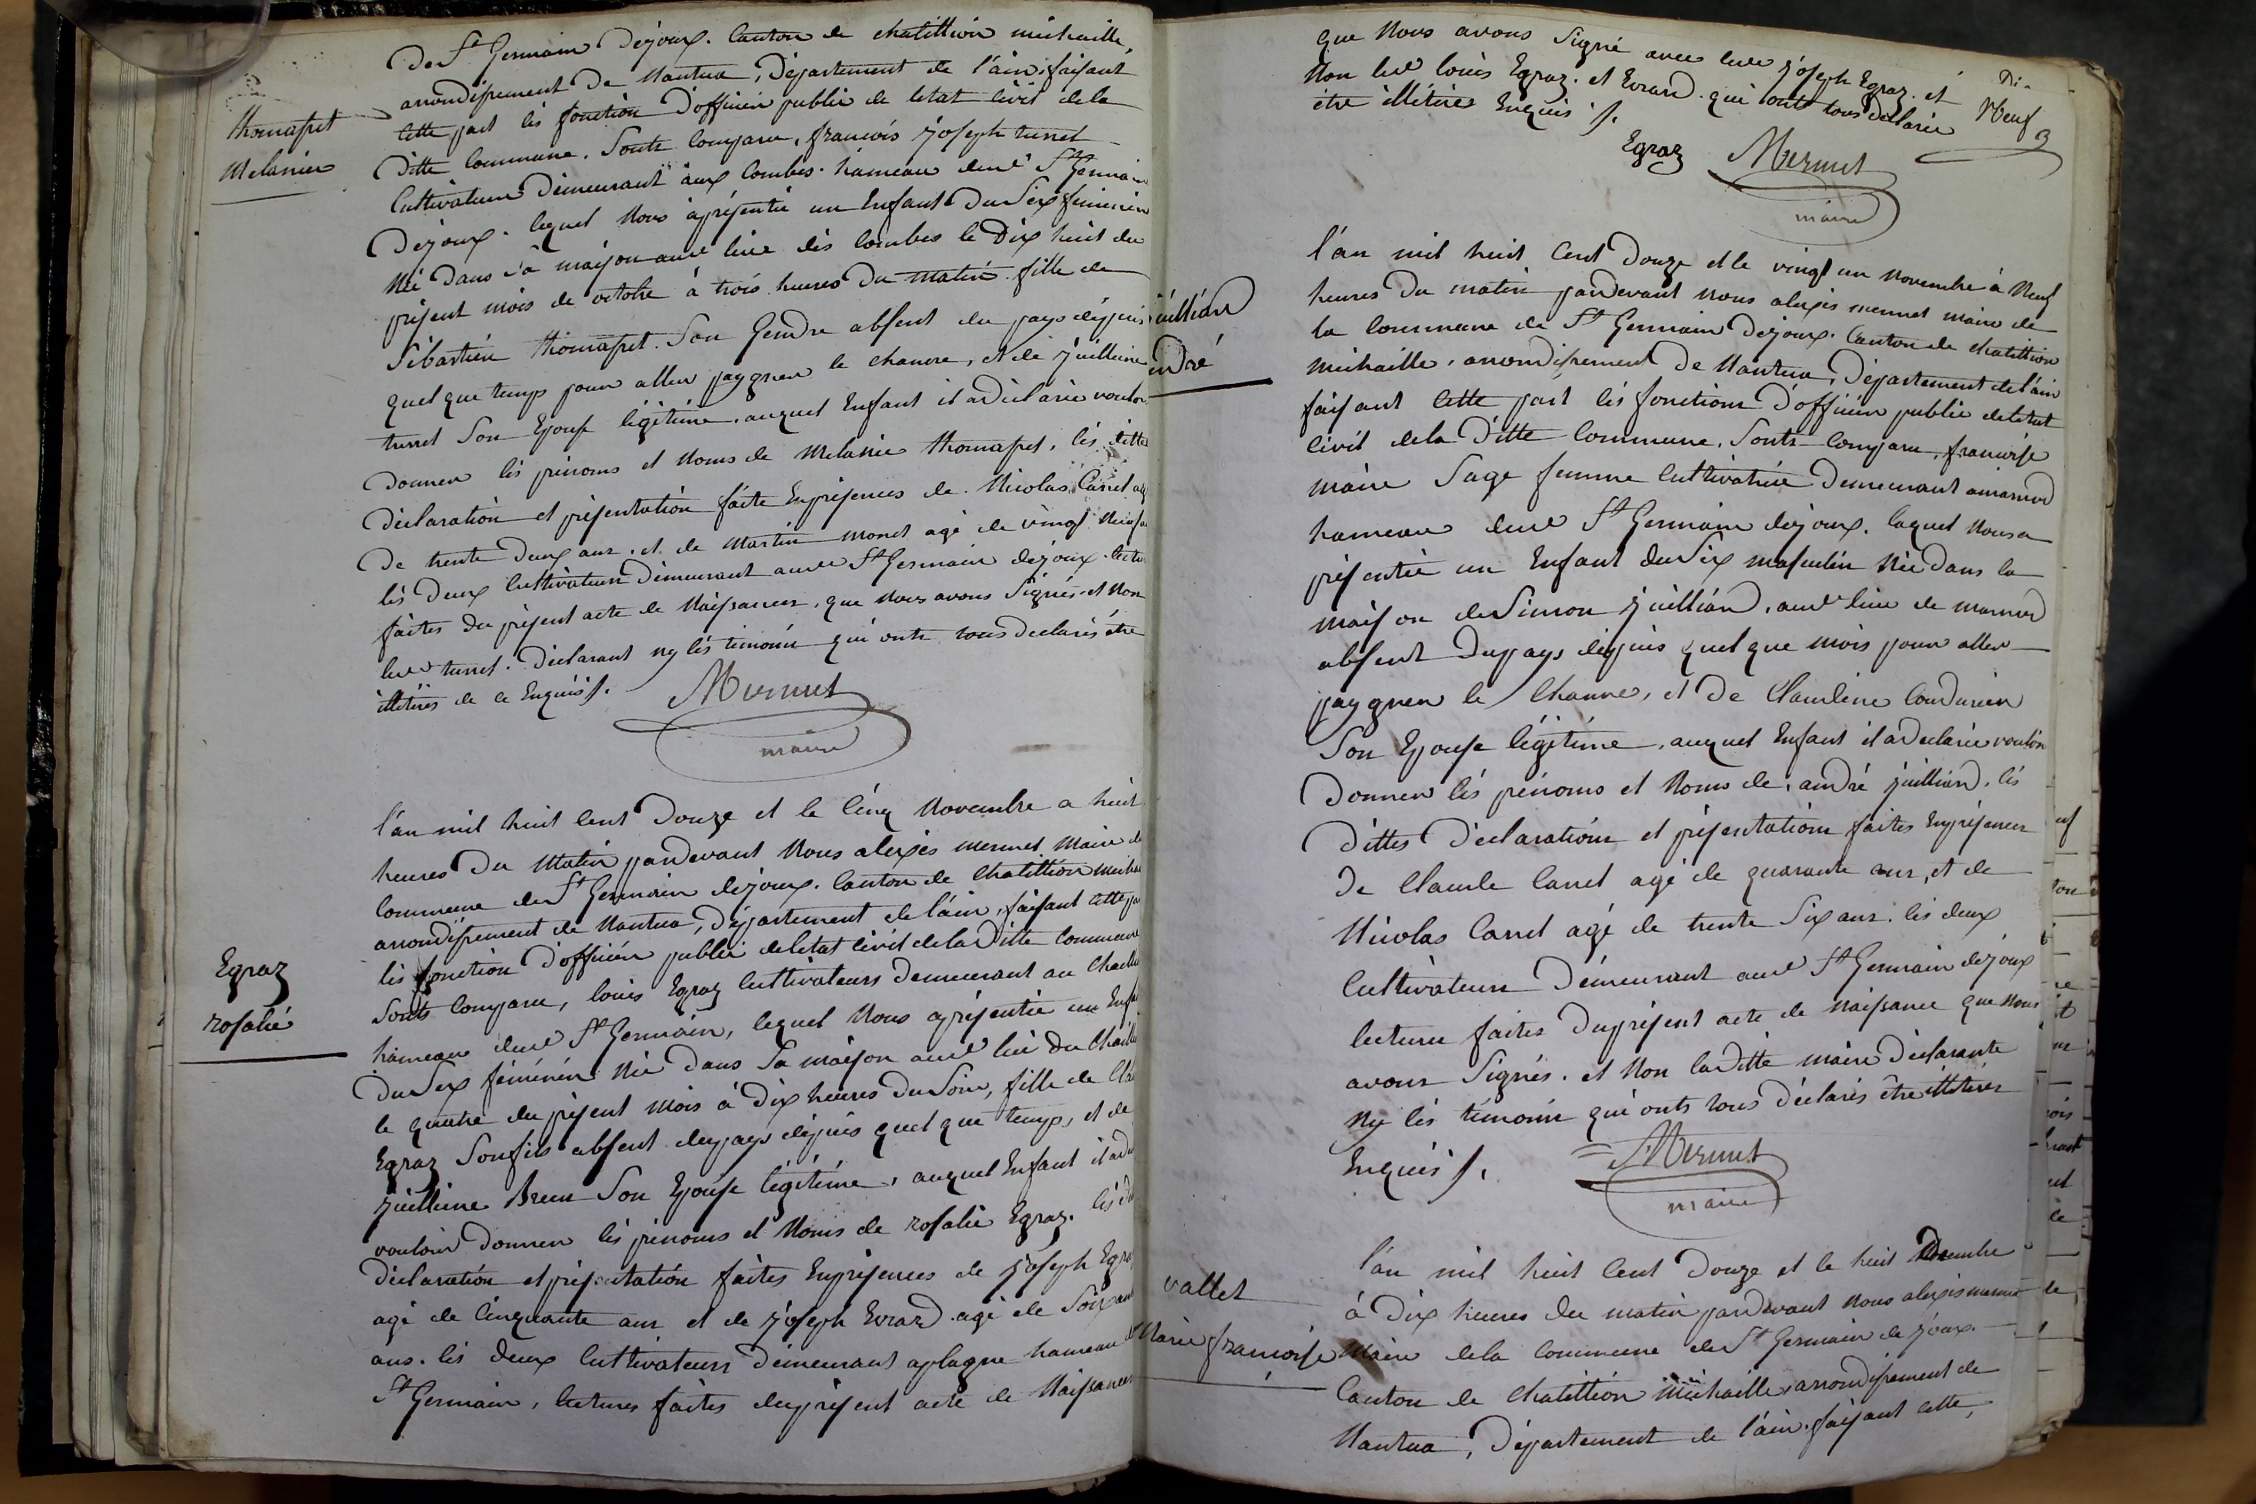 thomasset
Melanie
De St Germain Dejoux. Canton de chatillion michaille,
arrondissement De Nantua, Département de l'ain, faisant
cette part lés fonction D'officier public de letat civil dela
Ditte Commune. Sonts Comparu, francois Joseph turrel
Cultivateur Demeurant aux Combes. hameau dud. St Germain
Dejoux. lequel Nous à présentée un Enfant Du Sex feminin
Née Dans sa maison aud. lieu dés Combes le Dix huit du
présent mois de octobre à trois heures Du matin. fille de
Sébastien thomasset. Son Gendre absent du pays dépuis
quelque temps pour aller paygner le chanvre, et de Juillienne
turrel Son Epouse légitime. auquel Enfant il a Déclarée vouloir
Donner lés prénoms et Noms de Melanie thomasset, lés dittes
Déclaration et présentation faite En présences de Nicolas Carrel agé
De trente Deux ans. et de Martin monet agé de vingt Neuf ans
lés Deux Cultivateurs Demeurant aud. St Germain dejoux. lecture
faites du présent acte de Naissances, que Nous avons Signés. et Non
led. turrel. Déclarant ny lés témoins qui onts tous declarés être
illétirés de ce Enquis ſ.
Mermet
maire
Egraz
rosalie
l'an mil huit Cent Douze et le Cinq Novembre a huit
heures Du Matin pardevant Nous alexis mermet Maire de
Commune de St Germain dejoux. Canton de Chatillion michaille
arrondissement de Nantua, Département de l'ain, faisant cette part
lés fonction D'officier public deletat civil dela Ditte Commune
Sonts Comparu, louis Egraz Cultivateurs Demeurant au
hameau dud. St Germain, lequel Nous a présentée un Enfant
Du Sex féminin Née Dans Sa maison aud. lieu Du
le quatre du présent mois à dix heures Du Soir, fille de
Egraz Son fils absent du pays dépuis quel que temps, et de
Juillienne Brun Son Epouse légitime, auquel Enfant il a
vouloir Donner lés prénoms et Noms de rosalie Egraz. lés
Déclaration et présentation faites En présences de Joseph Egraz
agé de Cinquante ans et de Joseph Evrard agé de Soixante
ans. lés deux Cultivateurs Demeurant a plagne hameau
St Germain, lectures faites du présent acte de Naissances
que Nous avons Signé avec led. Joseph Egraz. et
Non led. louis Egraz. et Evrard. qui onts tous déclarée
être illétirés Enquis ſ.
Di-
Neuf
Egraz Mermet
maire
Juilliard
andré
l'an mil huit Cent Douze et le vingt un Novembre à Neuf
heures Du matin pardevant Nous alexis mermet maire de
la Commune de St Germain Dejoux. Canton de chatillion
michaille, arrondissement De Nantua, Département de l'ain
faisant Cette part lés fonctions D'officier public deletat
civil dela Ditte Commune. Sonts Comparu, francoise
maire Sage femme Cultivatrice Demeurant a marnod
hameau dud. St Germain dejoux. laquel Nous a
présentée un Enfant du Sex masculin Née Dans la
maison de Simon Juilliard, aud. lieu de marnod
absent Du pays depuis quel que mois pour aller
paygner le Chanvre, et De Claudine Coudurier
Son Epouse légitime, auquel Enfant il a Declarée vouloir
Donner lés prénoms et Noms de, andré Juilliard. lés
Dittes Déclarations et présentations faites En présences
De Claude Carrel agé de quarante ans, et de
Nicolas Carrel agé de trente Six ans. lés deux
Cultivateurs Démeurant aud. St Germain dejoux
lecture faites Du présent acte de Naissance que Nous
avons Signés. et Non la Ditte maire Déclarante
ny lés témoins qui onts tous Déclarés être illétirés
Enquis ſ.
Mermet
maire
vallet
Marie francoise
l'an mil huit Cent Douze et le huit Decembre
à Dix heures du matin pardevant Nous alexis mermet
Maire dela Commune de St Germain de joux.
Canton de Chatillion Michaille, arrondissement de
Nantua, Département de l'ain. faisant cette,